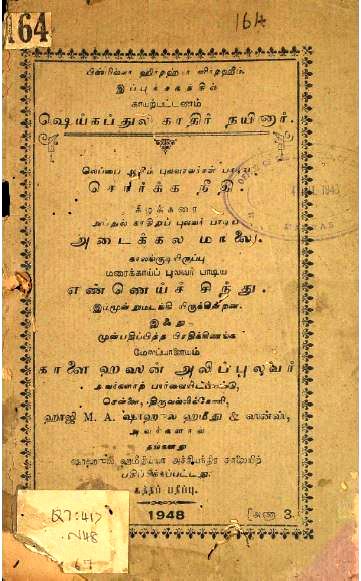 164
164
பிஸ்மில்லா ஹிர்ரஹ்மா னிர்ரஹீம்.
இப்புத்தகத்தில்
காயற்பட்டணம்
ஷெய்கப்துல் காதிர் நயினார்.
லெப்பை ஆலிம் புலவரவர்கள் பாடிய
சொர்க்க நீதி
கீழக்கரை
அப்துல் காதிறுப் புலவர் பாடிய
அடைக்கல மாலை.
காலங்குடியிருப்பு
மரைக்காய்ப் புலவர் பாடிய
எண்ணெய்ச் சிந்து.
இம்மூன்றுமடக்கி யிருக்கின்றன.
இஃது
முன்பதிப்பித்த பிரதிக்கிணங்க
மேலப்பாளையம்
காளை ஹஸன் அலிப்புலவர்
அவர்களாற் பார்வையிடப்பட்டு,
சென்னை, திருவல்லிக்கேணி,
ஹாஜி M. A. ஷாஹுல ஹமீது & ஸன்ஸ்,
அவர்களால்
தங்களது
ஷாஹுல் ஹமீதிய்யா அச்சியந்திர சாலையிற்
பதிப்பிக்கப்பட்டது.
1948
அணா 3.
Q7:417
N48